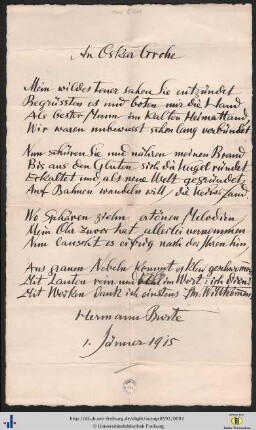 An Oskar Grohe
Mein wildes Feuer sahen Sie entzündet
Begrüssten es und boten mir die Hand
Als bester Mann im kalten Heimatland,
Wir waren unbewusst schon lang verbündet
Nun schüren Sie und nähren meinen Brand
Bis aus den Gluten sich die Kugel ründet
Erkaltet und als neue Welt gegründet
Auf Bahnen wandeln will, die
Wo Sphären ziehn Melodien
Mein Ohr zuvor hat allerlei vernommen
Nun lauscht es eifrig nach der Ihren hin,
Aus grauen Nebeln kommt es
Mit Lauten rein und im Wort:
Mit Werken dank ich einstens Ihr Willkommen
Hermann Burte
1. Jänner 1915
© Universitätsbibliothek Freiburg